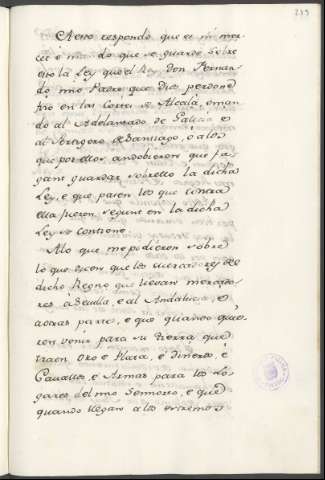 233
A esto respondo que es mi mer-
ced e man do que se guarde sobre
esto la Ley que el Rey Don Fernan-
do mio Padre que Dios perdone
fizo en las Cortes de Alcalá, e man-
do al Adelantado de Galicia e
al Pertiguero de Santiago, e a los
que por ellos andobieren que fa-
gan guardar sobrello la dicha
Ley, e que pasen los que contra
ella fueren segunt en la dicha
Ley se contiene.
A lo que me pedieron sobre
lo que dicen que los mercadores del
dicho Regno que llevan mercado-
res a Sevilla, e al Andalucia, e
a otras partes, e que quando quie-
ren venir para su tierra que
traen Oro e Plata, e Dineros, e
Cavallos, e Armas para los Lo-
gares del mio Sennorio, e que
quando llegan a los extremos